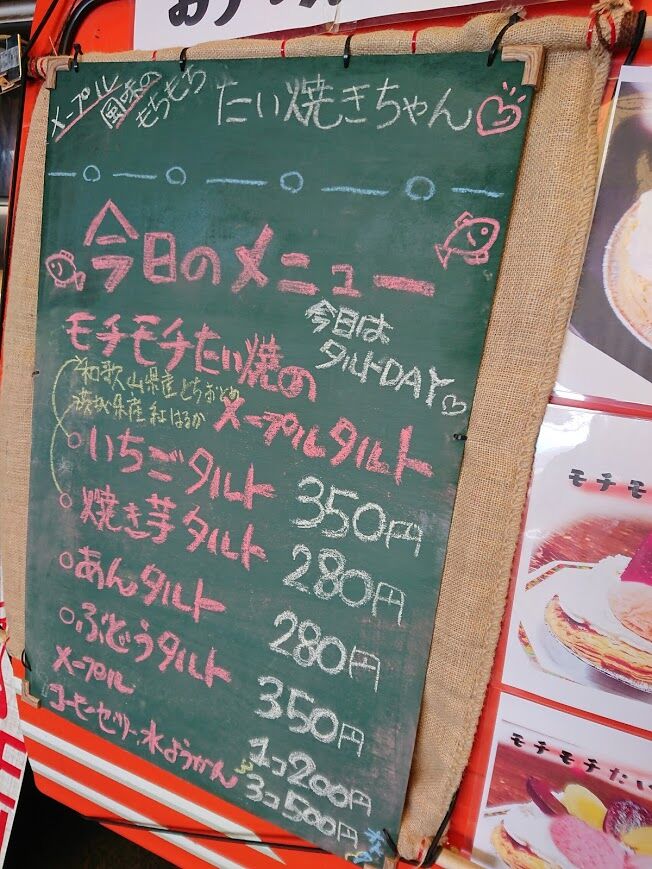 メープル
風味の
もちもち
たい焼きちゃん
今日のメニュー
今日は
タルトDAY
モチモチたい焼の
メープルタルト
和歌山県産とちおとめ
茨城県産紅はるか
いちごタルト 350円
焼き芋タルト 280円
あんタルト 280円
ぶどうタルト 350円
メープル
コーヒーゼリー、水ようかん
1コ200円
3コ500円
モチモ
モチモチたい